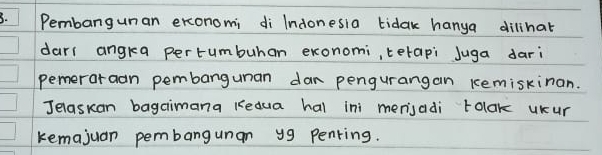 3. Pembangunan ekonomi di Indonesia tidak hanya dilihat
dari angka pertumbuhan ekonomi, tetapi juga dari
pemerataan pembangunan dan pengurangan kemiskinan.
Jelaskan bagaimana kedua hal ini menjadi tolak ukur
kemajuan pembangunan yg penting.